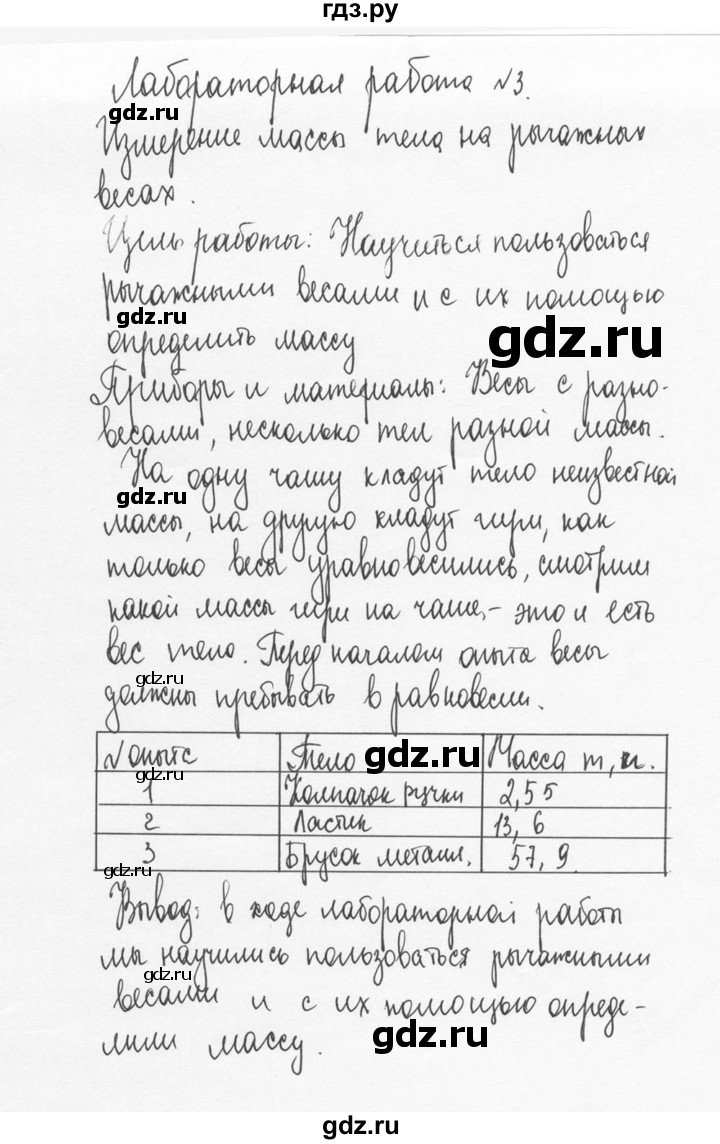 гдз.ру
Лабораторная работа №3.
gdz.ru
Измерение массы тела на рычажных
весах.
Цель работы: Научиться пользоваться
рычажными весами и с их помощью
gdz.ru
gdz.ru
определить массу
Приборы и материалы: Весы с разно-
весами, несколько тел разной массы.
На одну чашу кладут тело неизвестной
gdz.ru
массы, на другую кладут гири, как
только весы уравновесились, смотрим
какой массы гири на чаше,- это и есть
вес тело. Перед началом опыта весы
gdz.ru
должны пребывать в равновесии.
№ опыта Тело Масса m, г.
gdz.ru
gdz.ru
1 Колпачок ручки 2,55
2 Ластик 13,6
3 Брусок металл. 57,9
gdz.ru
Вывод: в ходе лабораторной работы
мы научились пользоваться рычажными
gdz.ru
весами и с их помощью опреде-
лили массу.
gdz.ru
gdz.ru